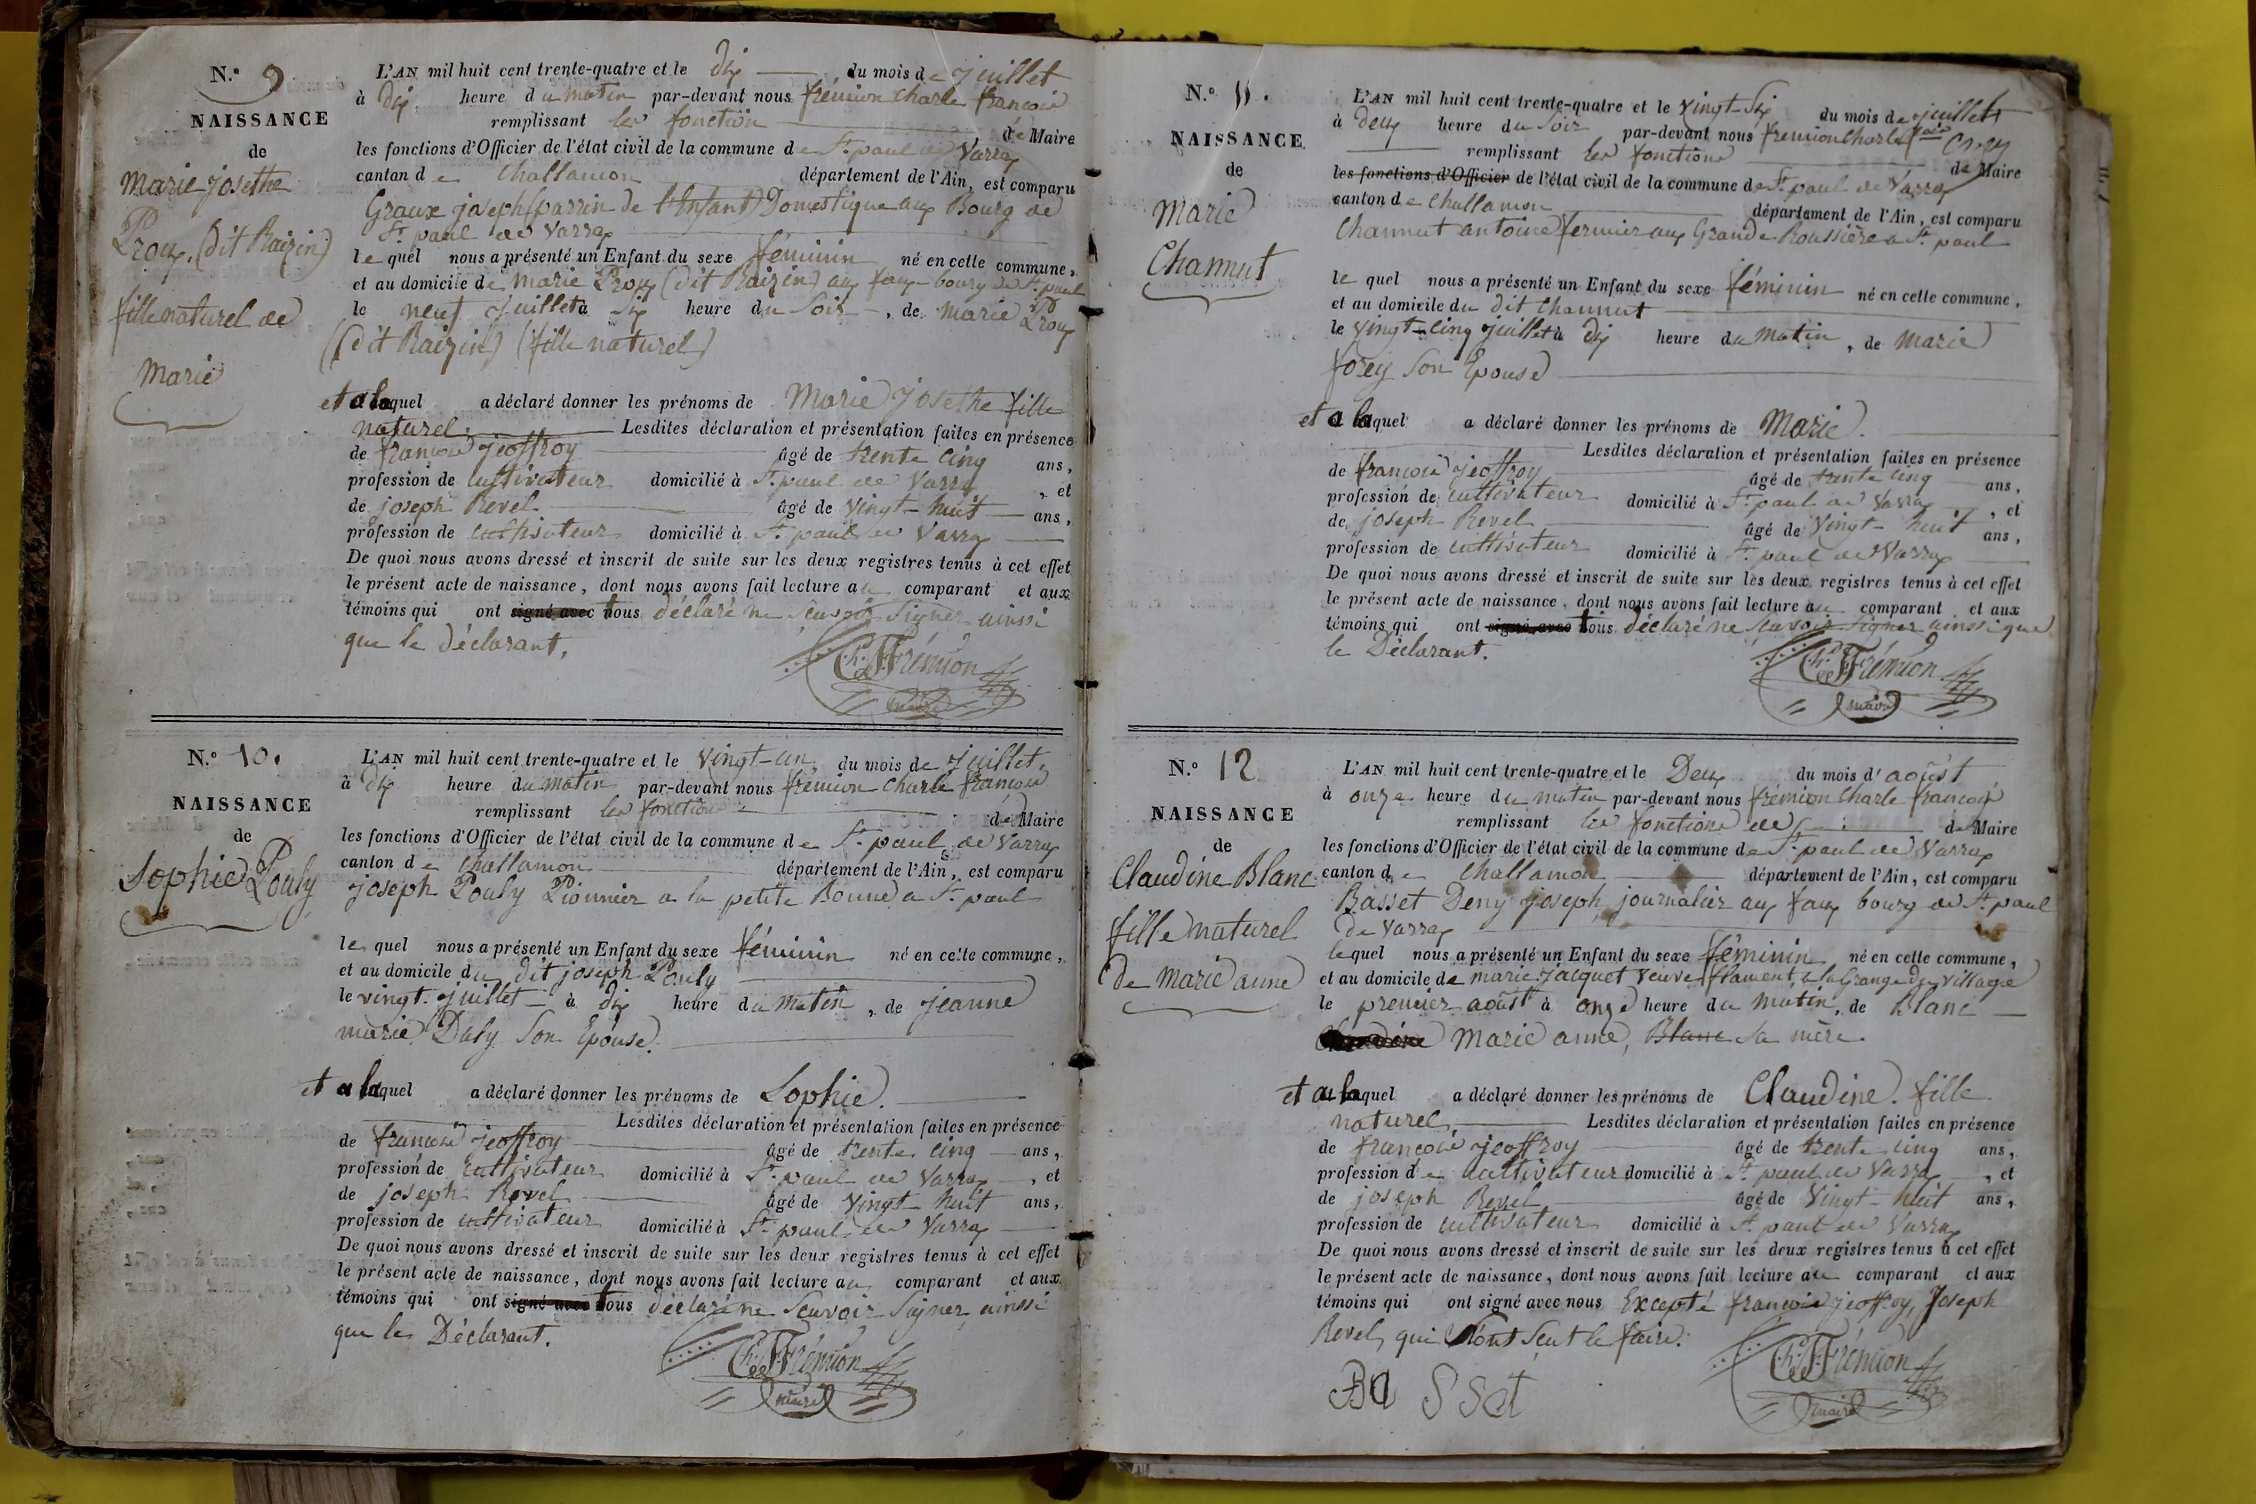 N.° 9
NAISSANCE
de
Marie josethe
Proux (dit Raizin)
fille naturel de
Marie
L'AN mil huit cent trente-quatre et le dix du mois de juillet
à dix heure du matin par-devant nous frémion Charle francois
remplissant les fonction de Maire
les fonctions d'Officier de l'état civil de la commune de St. paul de Varax
canton de Challamon département de l'Ain, est comparu
Graux joseph (parrin de l'Enfant) Domestique aux Bourg de
St. paul de Varax
le quel nous a présenté un Enfant du sexe féminin né en cette commune,
et au domicile de marie Proux (dit Raizin) aux faux-bourg de St. paul
le neuf juillet à six heure du Soir, de marie Proux
(dit Raizin) (fille naturel)
et a laquel a déclaré donner les prénoms de Marie josethe fille
naturel. Lesdites déclaration et présentation faites en présence
de francois jeoffroy âgé de trente cinq ans,
profession de cultivateur domicilié à St. paul de Varax, et
de joseph Revel âgé de vingt-huit ans,
profession de cultivateur domicilié à St. paul de Varax
De quoi nous avons dressé et inscrit de suite sur les deux registres tenus à cet effet
le présent acte de naissance, dont nous avons fait lecture au comparant et aux
témoins qui ont signé avec tous déclaré ne scavoir signer ainssi
que le déclarant.
Ch. Fr. Frémion
maire
N.° 10.
NAISSANCE
de
Sophie Pouly
L'AN mil huit cent trente-quatre et le vingt-un du mois de juillet,
à dix heure du matin par-devant nous frémion Charle francois
remplissant les fonction de Maire
les fonctions d'Officier de l'état civil de la commune de St. paul de Varax
canton de Challamon département de l'Ain, est comparu
joseph Pouly Pionnier a la petite Bonne a St. paul
le quel nous a présenté un Enfant du sexe féminin né en cette commune,
et au domicile du dit joseph Pouly
le vingt juillet à dix heure du matin, de jeanne
marie Daly Son Epouse.
et a laquel a déclaré donner les prénoms de Sophie.
Lesdites déclaration et présentation faites en présence
de francois jeoffroy âgé de trente cinq ans,
profession de cultivateur domicilié à St. paul de Varax, et
de joseph Revel âgé de vingt-huit ans,
profession de cultivateur domicilié à St. paul de Varax
De quoi nous avons dressé et inscrit de suite sur les deux registres tenus à cet effet
le présent acte de naissance, dont nous avons fait lecture au comparant et aux
témoins qui ont signé avec tous déclaré ne Scavoir Signer, ainssi
que le Déclarant.
Ch. Fr. Frémion
maire
N.° 11.
NAISSANCE
de
Marie
Channut
L'AN mil huit cent trente-quatre et le vingt-six du mois de juillet
à deux heure du Soir par-devant nous fremion Charle
remplissant les fonctions de Maire
les fonctions d'Officier de l'état civil de la commune de St. paul de Varax
canton de Challamon département de l'Ain, est comparu
Channut antoine fermier aux Grande Roussière a St. paul
le quel nous a présenté un Enfant du sexe féminin né en cette commune,
et au domicile du dit Channut
le vingt-cinq juillet à dix heure du matin, de Marie
forey Son Epouse
et a laquel a déclaré donner les prénoms de Marie.
Lesdites déclaration et présentation faites en présence
de francois jeoffroy âgé de trente cinq ans,
profession de cultivateur domicilié à St. paul de Varax, et
de joseph Revel âgé de vingt-huit ans,
profession de cultivateur domicilié à St. paul de Varax
De quoi nous avons dressé et inscrit de suite sur les deux registres tenus à cet effet
le présent acte de naissance, dont nous avons fait lecture au comparant et aux
témoins qui ont signé avec tous déclaré ne scavoir signer ainssi que
le Déclarant.
Ch. Fr. Frémion
maire
N.° 12
NAISSANCE
de
Claudine Blanc
fille naturel
de Marie anne
L'AN mil huit cent trente-quatre et le Deux du mois d'août
à onze heure du matin par-devant nous frémion Charle francois
remplissant les fonctions de de Maire
les fonctions d'Officier de l'état civil de la commune de St. paul de Varax
canton de Challamon département de l'Ain, est comparu
Basset Deny joseph, journalier aux faux bourg de St. paul
de Varax
lequel nous a présenté un Enfant du sexe féminin né en cette commune,
et au domicile de marie jacquet veuve flament, a la Grange du village
le premier août à onze heure du matin, de Blanc
Marie anne, Blanc sa mère.
et a laquel a déclaré donner les prénoms de Claudine. fille
naturel, Lesdites déclaration et présentation faites en présence
de françois jeoffroy âgé de trente cinq ans,
profession de cultivateur domicilié à St. paul de Varax, et
de joseph Revel âgé de vingt-huit ans,
profession de cultivateur domicilié à St. paul de Varax
De quoi nous avons dressé et inscrit de suite sur les deux registres tenus à cet effet
le présent acte de naissance, dont nous avons fait lecture au comparant et aux
témoins qui ont signé avec nous Excepté francois jeoffroy, Joseph
Revel, qui n'ont Seut le faire.
Ba SSet
Ch. Fr. Frémion
maire